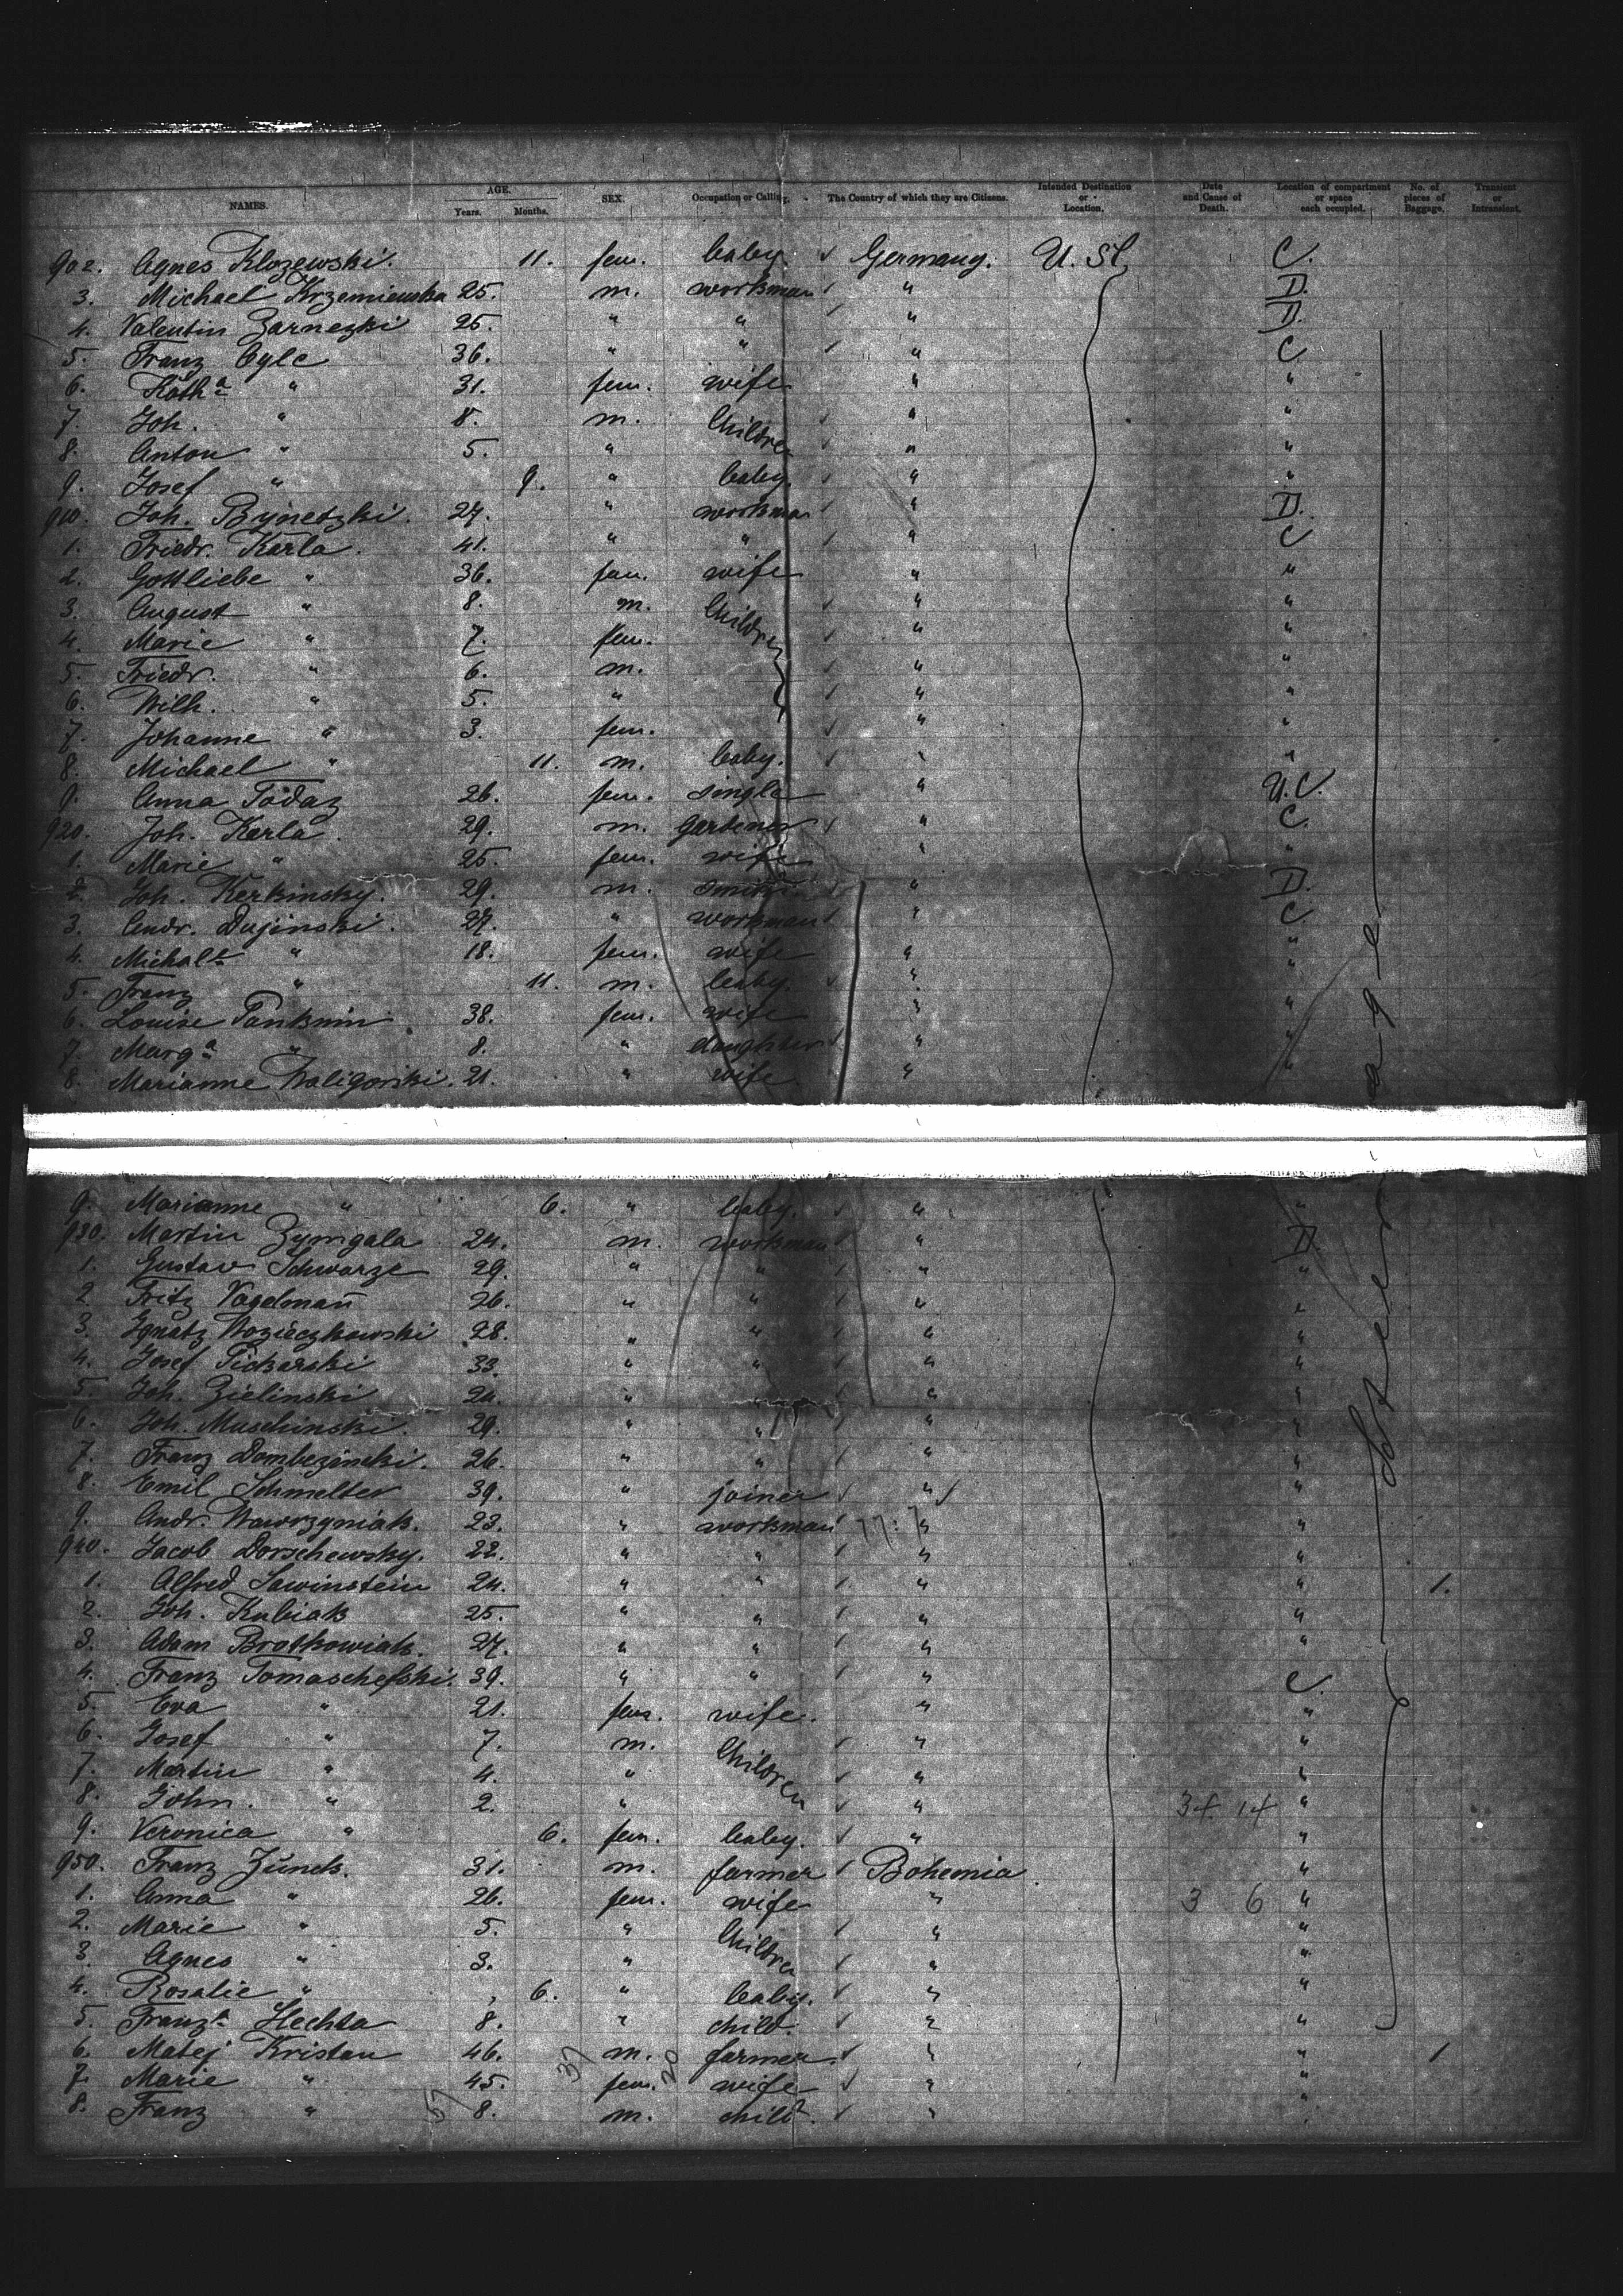 NAMES. AGE. Years. Months. SEX. Occupation or Calling. The Country of which they are Citizens. Intended Destination or Location. Date and Cause of Death. Location of compartment or space each occupied. No. of pieces of Baggage. Transient or Intransient.
902. Agnes Klozewski. 11. fem. baby. Germany. U. St. C.
3. Michael Krzemienska 25. m. workman " D.
4. Valentin Zarnezki 25. " " " D.
5. Franz Cylc 36. " " " C.
6. Kath.a " 31. fem. wife " "
7. Joh. " 8. m. Children " "
8. Anton " 5. " " "
9. Josef " 9. " baby. " "
910. Joh. Bynetzki. 27. " workman " D.
1. Friedr. Karla. 41. " " " C
2. Gottliebe " 36. fem. wife " "
3. August " 8. m. Children " "
4. Marie " 7. fem. " "
5. Friedr. " 6. m. " "
6. Wilh. " 5. " " "
7. Johanne " 3. fem. " "
8. Michael " 11. m. baby. " "
9. Anna Todaz 26. fem. single " U.C.
920. Joh. Karla. 29. m. gardener " C.
1. Marie " 25. fem. wife " "
2. Joh. Kerkinsky. 29. m. smith " D.
3. Andr. Dujinski. 27. " workman " C.
4. Michal.a " 18. fem. wife " "
5. Franz " 11. m. baby. " "
6. Louise Pankmin. 38. fem. wife " "
7. Marg.a " 8. " daughter " "
8. Marianne Waligorski. 21. " wife " "
9. Marianne " 6. " baby. " "
930. Martin Zymgala 24. m. workman " D.
1. Gustav Schwarze 29. " " " "
2. Fritz Vogelmañ 26. " " " "
3. Ignatz Wozieczkowski 28. " " " "
4. Josef Pickarski 33. " " " "
5. Joh. Zielinski 24. " " " "
6. Joh. Muschinski. 29. " " " "
7. Franz Dombezinski. 26. " " " "
8. Emil Schmelter 39. " joiner " "
9. Andr. Wawrzyniak. 23. " workman " "
940. Jacob Dorschewsky. 22. " " " "
1. Alfred Lawinstein 24. " " " " 1.
2. Joh. Kubiak 25. " " " "
3. Adam Bratkowiak. 27. " " " "
4. Franz Tomaschefski. 39. " " " C.
5. Eva " 21. fem. wife. " "
6. Josef " 7. m. Children " "
7. Martin " 4. " " "
8. John. " 2. " " "
9. Veronica " 6. fem. baby. " "
950. Franz Junek. 31. m. farmer Bohemia. "
1. Anna " 26. fem. wife " 3 6 "
2. Marie " 5. " Children " "
3. Agnes " 3. " " "
4. Rosalie " 6. " baby. " "
5. Franz.a Hechta 8. " child. " "
6. Matej Kristan 46. m. farmer. " " 1
7. Marie " 45. fem. wife " "
8. Franz " 8. m. child. " "
Steerage